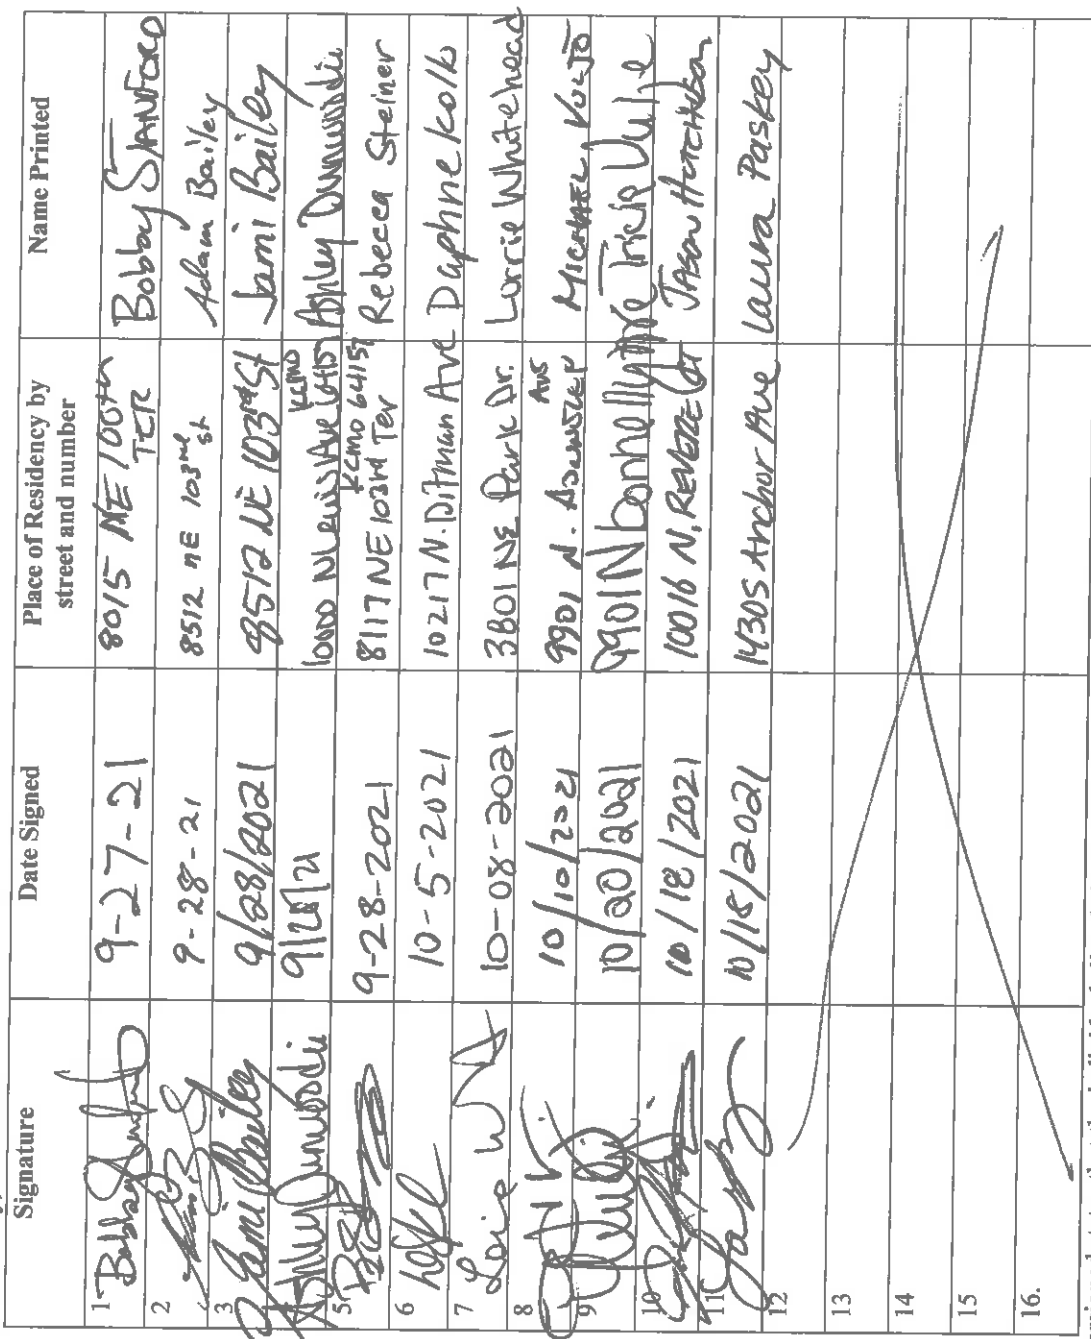 Signature Date Signed Place of Residency by street and number Name Printed
1 Bobby 9-27-21 8015 NE 100th TER Bobby STANFORD
2 9-28-21 8512 NE 103rd st Adam Bailey
3 Jami Bailey 9/28/2021 8512 NE 103rd St Jami Bailey
Ashley Dunwoodie 9/28/21 N Lewis Ave KCMO 64157 Ashley Dunwoodie
5. 9-28-2021 8117 NE 103rd Ter KCMO 64157 Rebecca Steiner
6 10-5-2021 10217 N. Ditman Ave Daphne Kolk
7 10-08-2021 3801 NE Park Dr. Lorrie Whitehead
8 10/10/2021 9901 N. Ave MICHAEL
9 10/20/2021 9901 N Tricia
10 10/18/2021 10016 N. REVERE Ct JASON HUTCHISON
11 10/18/2021 14305 Anchor Ave Laura Paskey
12
13
14
15
16.